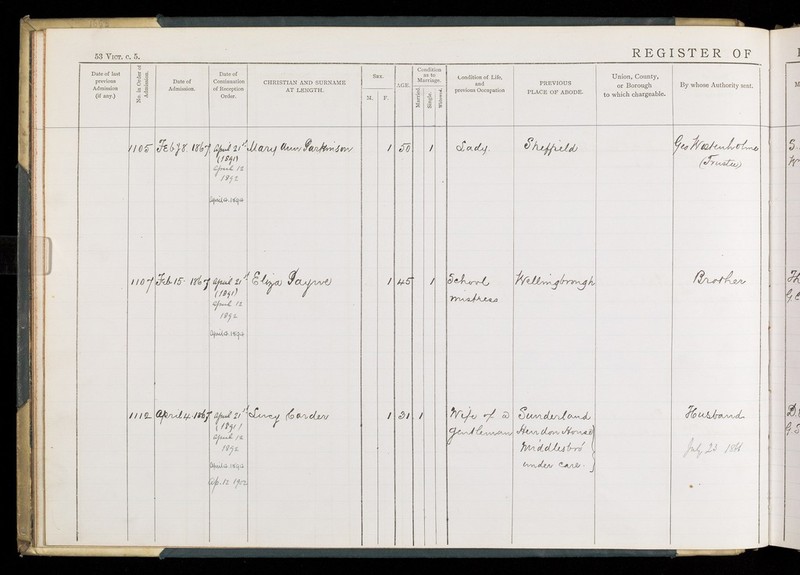 53 VICT. c. 5.
REGISTER OF
Date of last previous Admission (if any.)
No. in Order of Admission.
Date of Admission.
Date of Continuation of Reception Order.
CHRISTIAN AND SURNAME AT LENGTH.
Sex.
M. F.
AGE
Condition as to Marriage.
Married. Single. Widowed.
Condition of Life, and previous Occupation
PREVIOUS PLACE OF ABODE.
Union, County, or Borough to which chargeable.
By whose Authority sent.
1105 Feb 8 1867 April 21st Mary Ann Parkinson 1 50 1 Lady Sheffield Geo Wostenholme
(1891) (Trustee)
April 12
1892
April 2. 1894
1107 Feb 15. 1867 April 21st Eliza Payne 1 45 1 School Wellingborough Brother
(1891) mistress
April 12
1892
April 2. 1894
1112 April 4. 1867 April 21st Lucy Carder 1 31 1 Wife of a Sunderland Husband
(1891) gentleman Herndon House
April 12
1892 Middlesbro' July 22
April 2. 1894 under care.
Ap. 12 1902